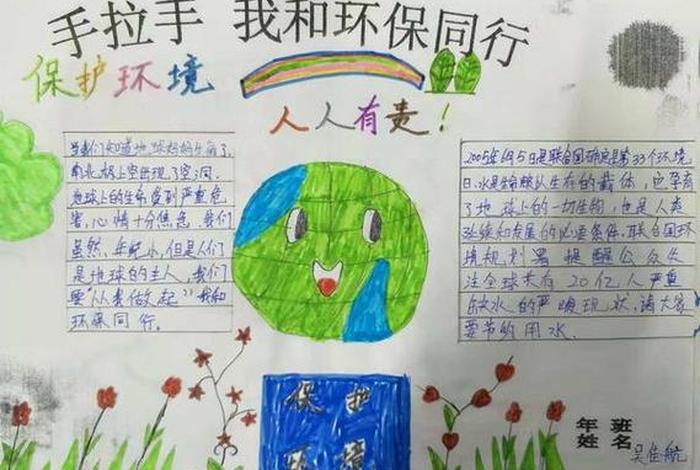 手拉手 我和环保同行
保护环境
人人有责!
当我们知道地球妈妈生病了,
南北极上空出现了空洞,
地球上的生命受到严重危
害,心情十分焦急,我们
虽然年纪小,但是人们
是地球的主人,我们
要"从我做起",我和
环保同行。
2005年6月5日是联合国确定是第33个环境
日.水是赖以生存的载体,它孕育
了地球上的一切生物,也是人类
延续和发展的必要条件.联合国环
境规划署提醒公众关
注全球大有20亿人严重
缺水的严峻现状,请大家
要节约用水.
保护
环境
年 班
姓名
吴佳航